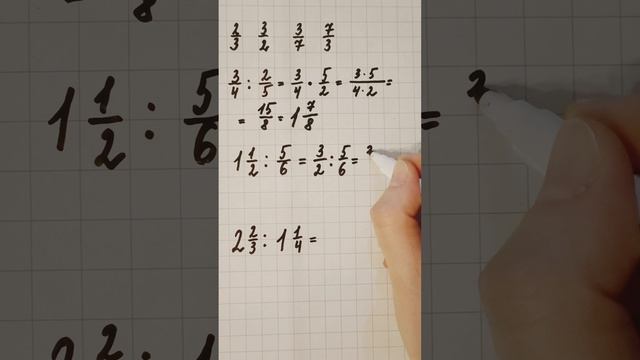 2/3 3/2 3/7 7/3
3/4 : 2/5 = 3/4 · 5/2 = 3·5/4·2 =
= 15/8 = 1 7/8
1 1/2 : 5/6 = 3/2 : 5/6 =
2 2/3 : 1 1/4 =